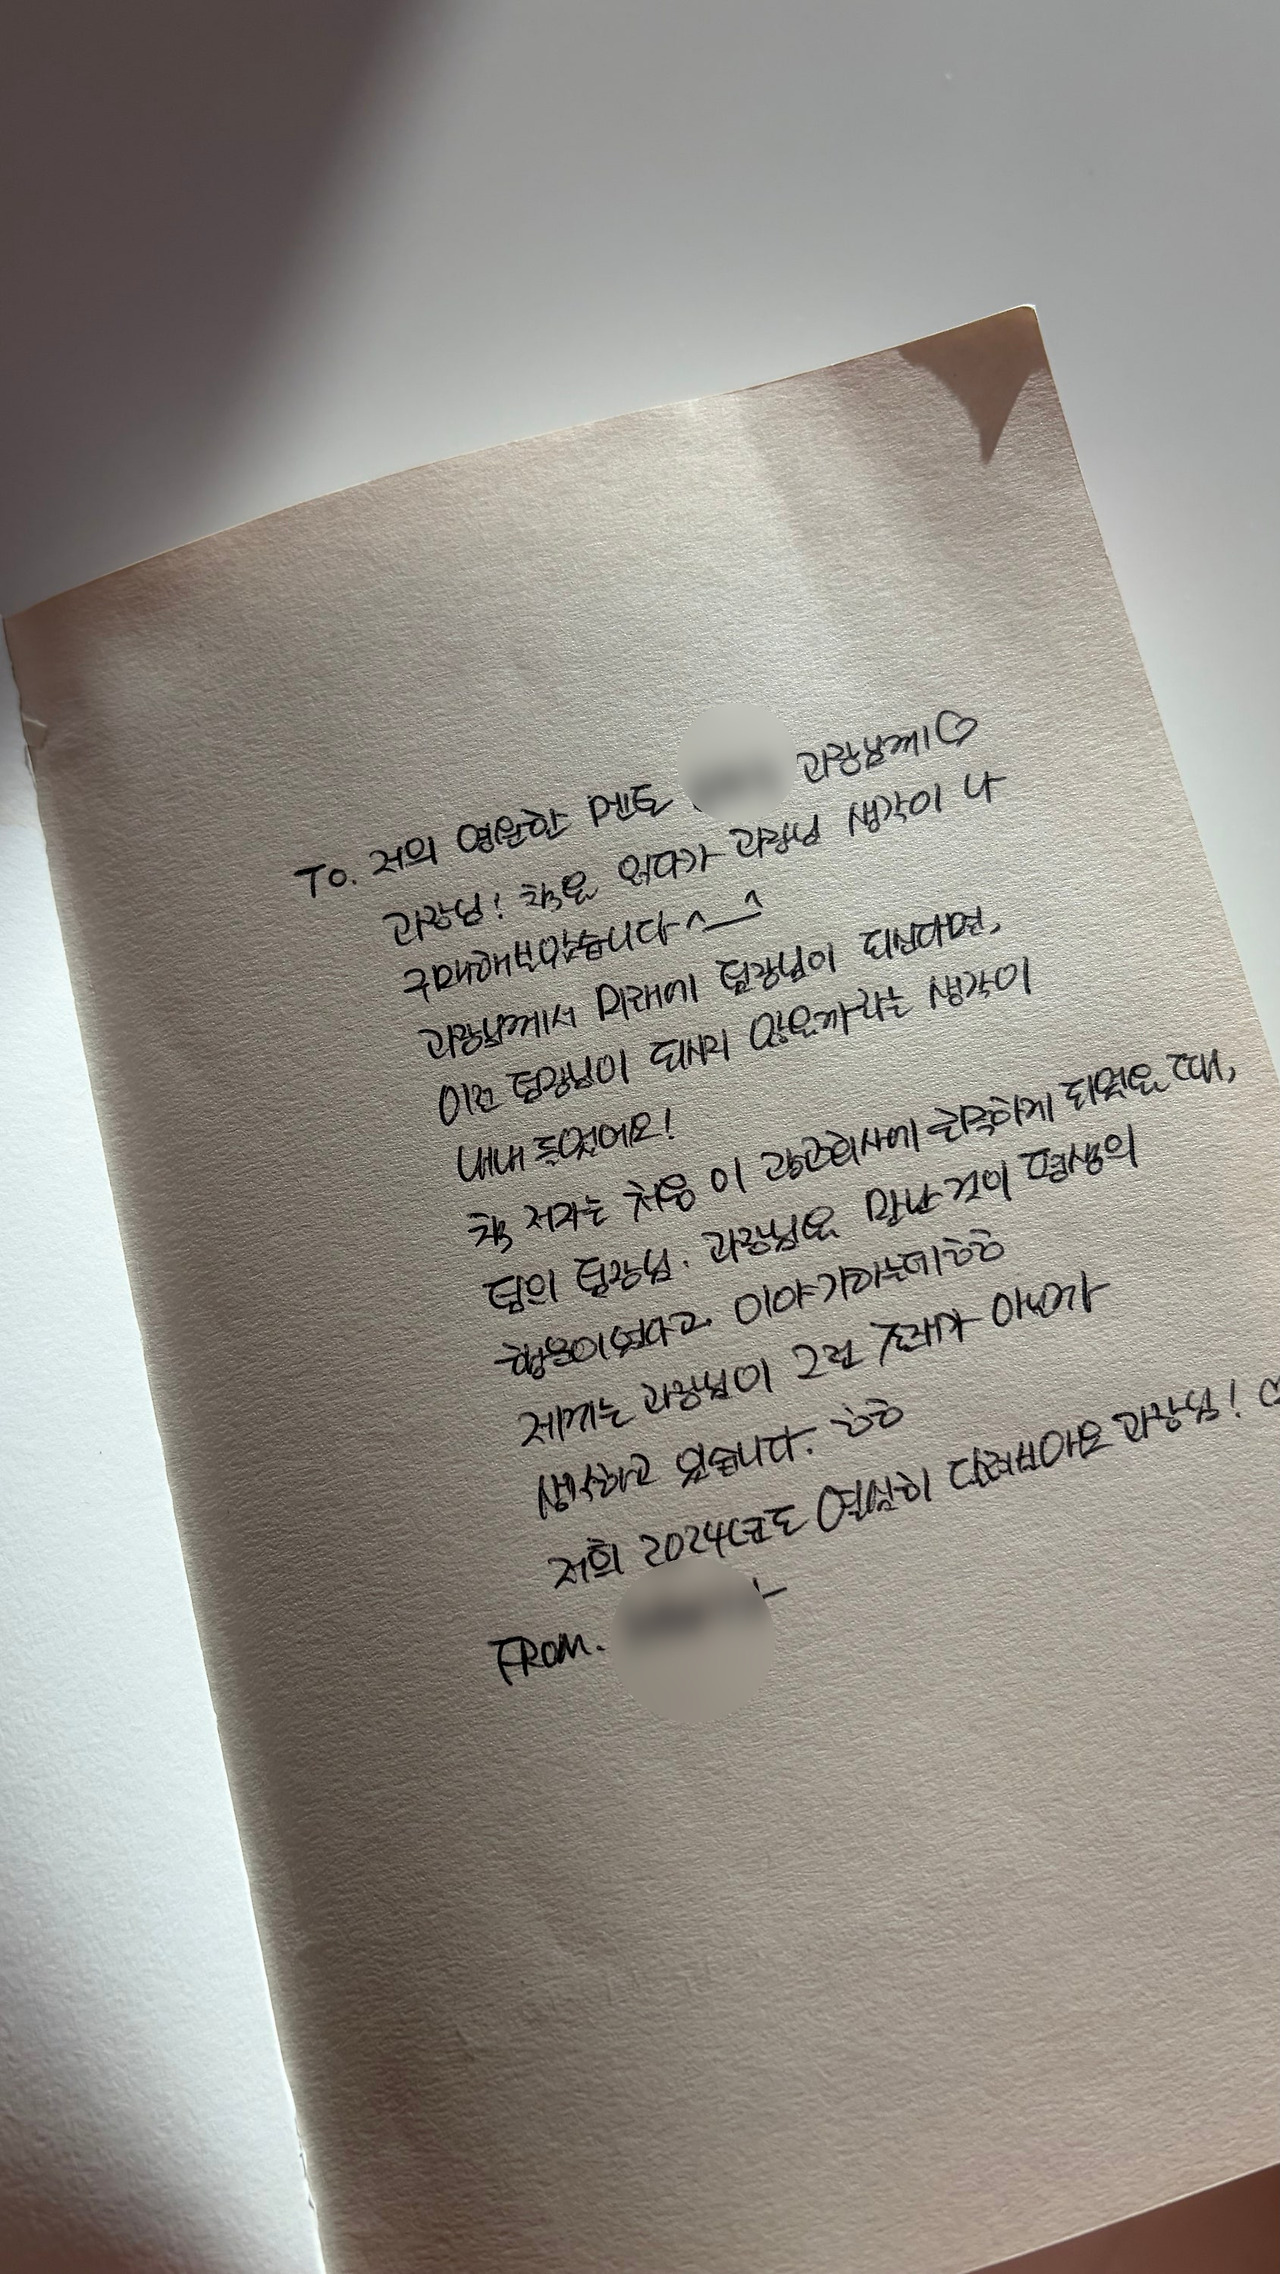 To. 저의 영원한 멘토 과장님께♡
과장님! 책을 읽다가 과장님 생각이 나
구매해보았습니다^__^
과장님께서 미래에 팀장님이 되신다면,
이런 팀장님이 되시지 않을까라는 생각이
내내 들었어요!
책 저자는 처음 이 광고회사에 취직하게 되었을 때,
팀의 팀장님. 과장님을 만난 것이 평생의
행운이었다고 이야기하는데ㅎㅎ
제게는 과장님이 그런 존재가 아닌가
생각하고 있습니다. ㅎㅎ
저희 2024년도 열심히 달려보아요 과장님! ♡
FROM.